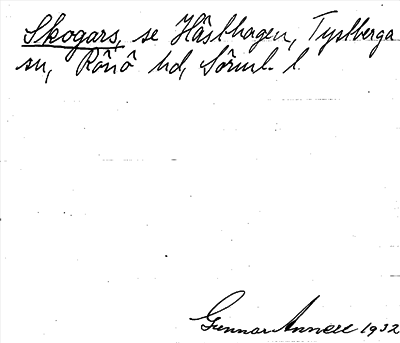 Skogars, se Hâsthagen, Tystberga
sn, Rônô hd, Sôrml. l.
Gunnar Annell 1932